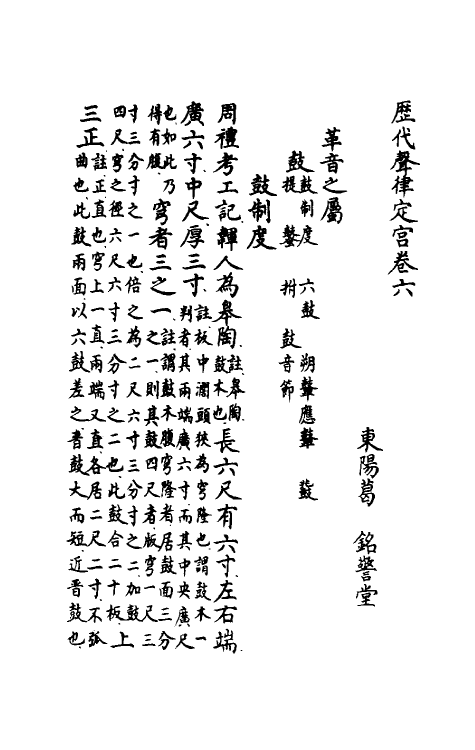 歷代聲律定宮卷六
東陽葛 銘警堂
革音之屬
鼓 鼓制度 六鼓 朔鼙應鼙 鼗
提 鼜 拊 鼓音節
鼓制度
周禮考工記韗人為皋陶註皋陶鼓木也長六尺有六寸左右端
廣六寸中尺厚三寸註板中濶頭狹為穹隆也謂鼓木一判者其兩端廣六寸而其中央廣尺
也如此乃得有腹穹者三之一註謂鼓木腹穹隆者居鼓面三分之一則其鼓四尺者版穹一尺三
寸三分寸之一也倍之為二尺六寸三分寸之二加鼓四尺穹之徑六尺六寸三分寸之二也此鼓合二十板上
三正註正直也穹上一直兩端又直各居二尺二寸不弧曲也此鼓兩面以六鼓差之書鼓大而短近晉鼓也